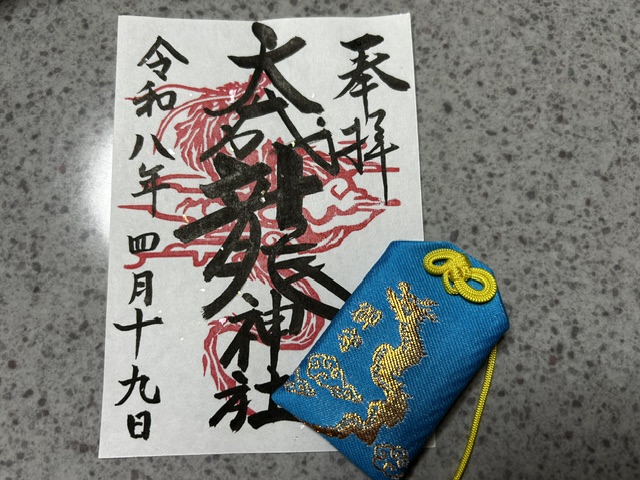 奉拝
大 龍神社
令和八年四月十九日
御守